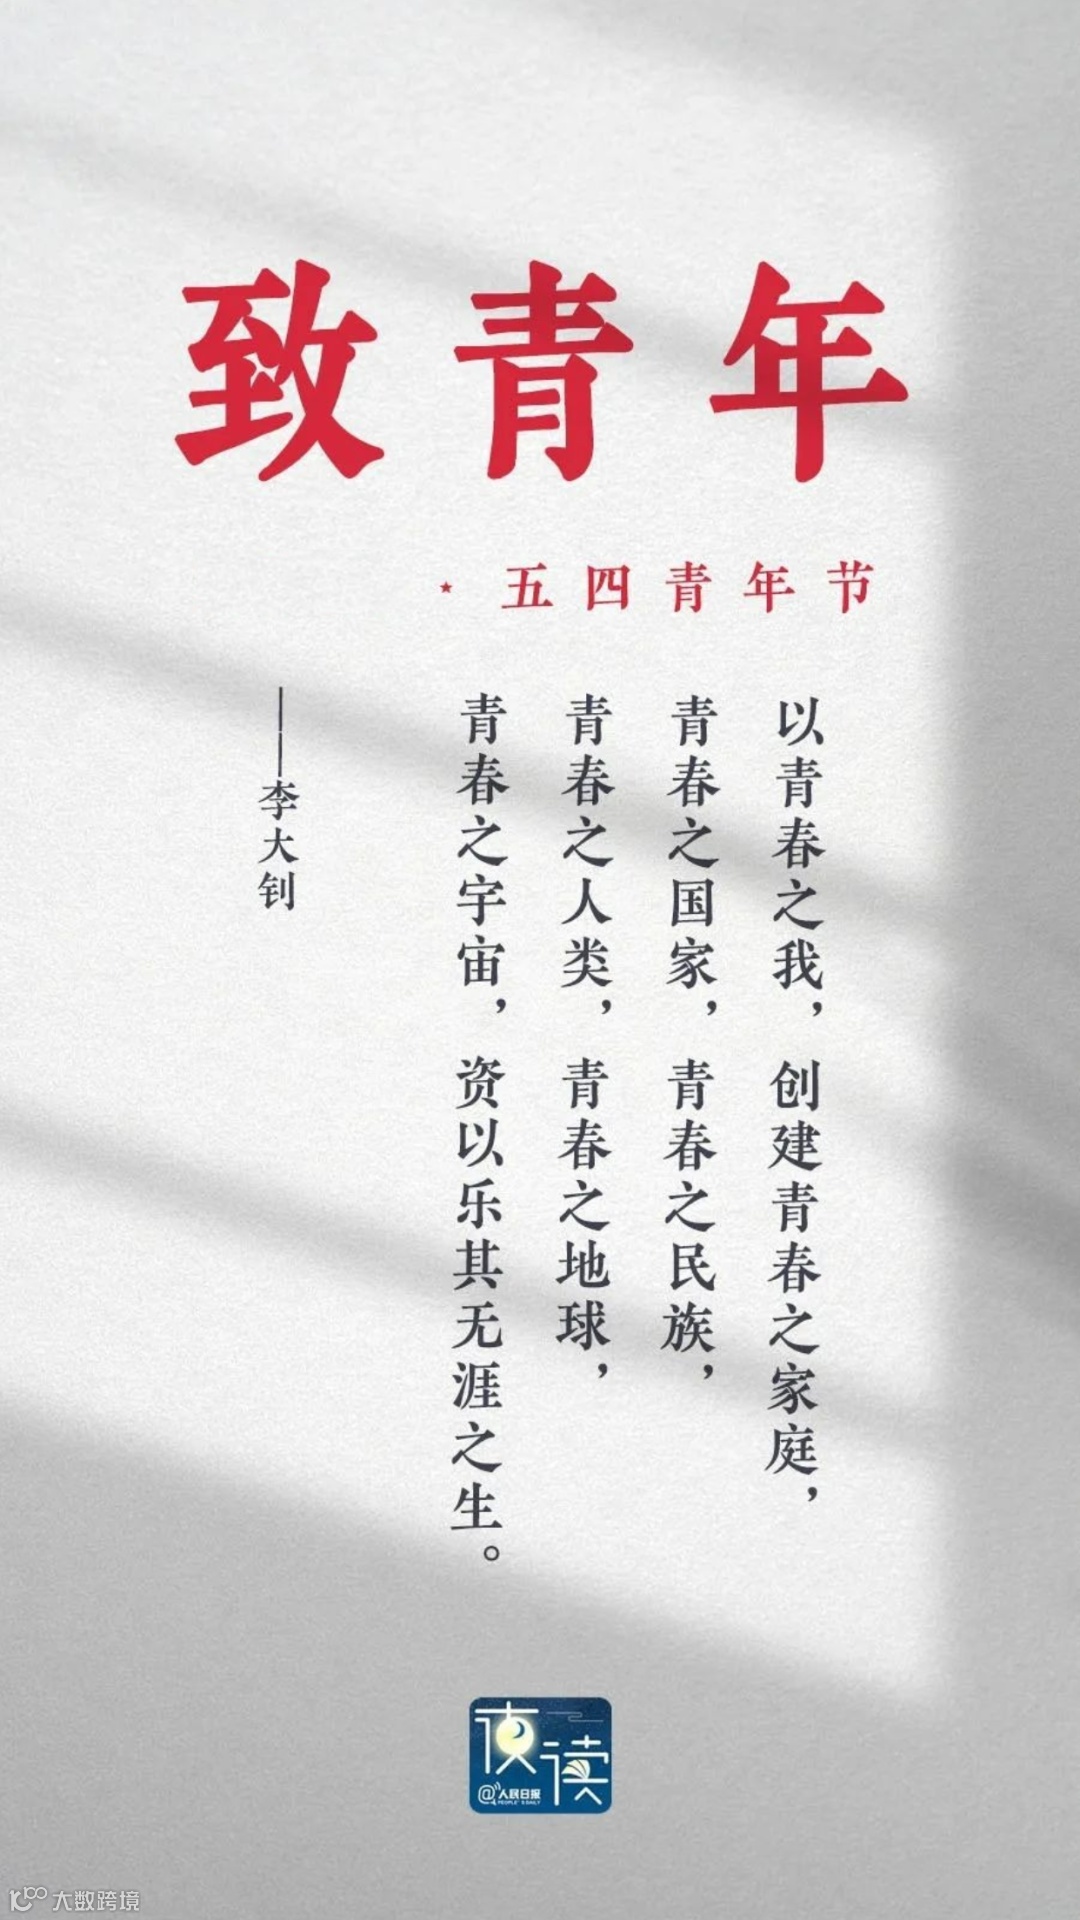 致青年
·五四青年节
以青春之我，创建青春之家庭，
青春之国家，青春之民族，
青春之人类，青春之地球，
青春之宇宙，资以乐其无涯之生。
——李大钊
夜读
@人民日报
PEOPLE'S DAILY
大数跨境